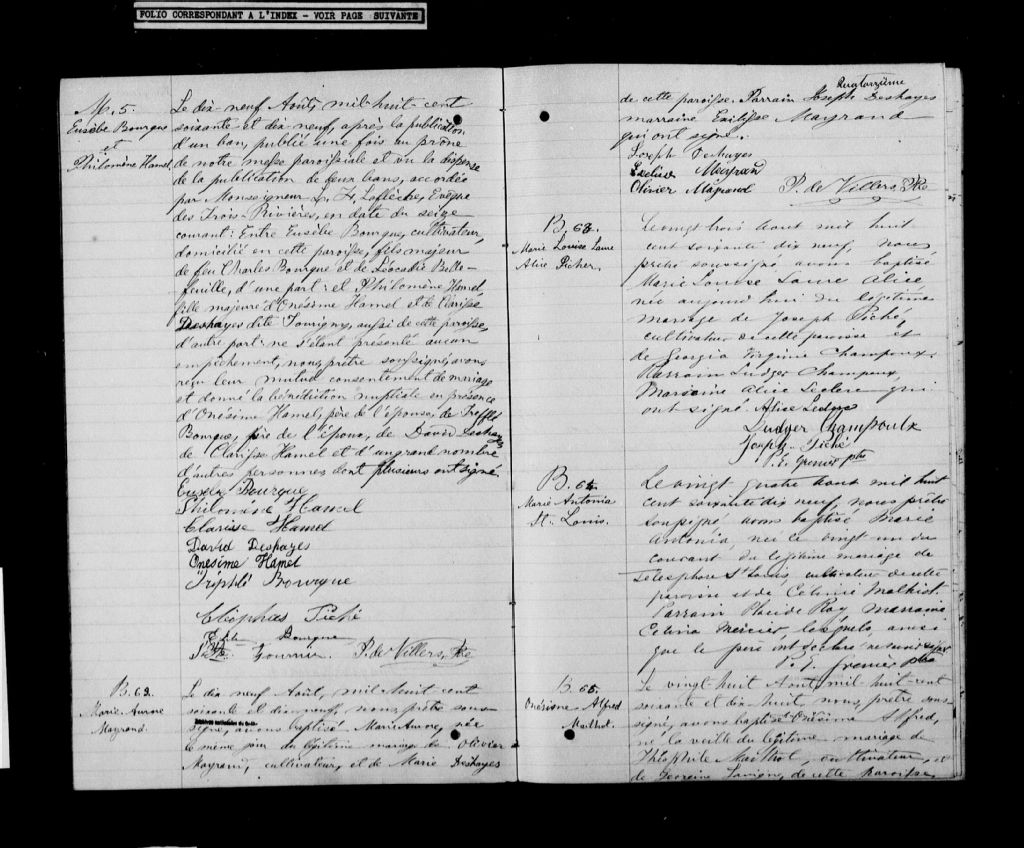 FOLIO CORRESPONDANT A L'INDEX - VOIR PAGE SUIVANTE
M. 5.
Eusèbe Bourque
et
Philomène Hamel
Le dix-neuf Août, mil-huit-cent
soixante et dix-neuf, après la publication
d'un ban, publié une fois au prône
de notre messe paroissiale et vu la dispense
de la publication de deux bans, accordée
par Monseigneur L. F. Laflèche, Evêque
des Trois-Rivières, en date du seize
courant: Entre Eusèbe Bourque, cultivateur,
domicilié en cette paroisse, fils majeur
de feu Charles Bourque et de Léocadie Belle-
feuille, d'une part: et Philomène Hamel,
fille majeure d'Onésime Hamel et de Clarisse
Deshayes dite Tourigny, aussi de cette paroisse,
d'autre part: ne s'étant présenté aucun
empêchement, nous, prêtre soussigné, avons
reçu leur mutuel consentement de mariage
et donné la bénédiction nuptiale en présence
d'Onésime Hamel, père de l'épouse, de Trefflé
Bourque, frère de l'époux, de David Deshayes
de Clarisse Hamel et d'un grand nombre
d'autres personnes dont plusieurs ont signé
Bourque
Philomène Hamel
Clarisse Hamel
David Deshayes
Onésime Hamel
Bourque
Cléophas Piché
Bourque
P. de Villers, Ptre
B. 62.
Marie-Aurore
Mayrand.
Le dix-neuf Août, mil-huit-cent
soixante et dix-neuf, nous, prêtre sous-
signé, avons baptisé Marie Aurore, née
le même jour du légitime mariage de Olivier
Mayrand, cultivateur, et de Marie Deshayes
Quatorzième
de cette paroisse. Parrain Joseph Deshayes
marraine Mayrand
qui ont signé.
Joseph Deshayes
Mayrand
Olivier Mayrand P. de Villers, Ptre
B. 63.
Marie Louise Laure
Alice Picher.
Le vingt trois Aout mil huit
cent soixante dix neuf, nous
prêtre soussigné avons baptisé
Marie Louise Laure Alice,
née aujourd'hui du légitime
mariage de Joseph Piché,
cultivateur de cette paroisse et
de Georgia Virginie Champoux.
Parrain Ludger Champoux,
Marraine Alice Leclerc qui
ont signé. Alice
Ludger Champoulx
Joseph Piché
P. E. Grenier ptre
B. 64.
Marie Antonia
St. Louis.
Le vingt quatre Aout mil huit
cent soixante dix neuf, nous prêtre
soussigné avons baptisé Marie
Antonia, née le vingt un du
courant du légitime mariage de
Télesphore St Louis, cultivateur de cette
paroisse et de Mailhiot.
Parrain Placide Roy, Marraine
Mercier, lesquels ainsi
que le père ont déclaré ne savoir signer
Grenier ptre
B. 65.
Onésime-Alfred
Mailhot.
Le vingt-huit Août mil-huit-cent
soixante et dix-huit, nous, prêtre sous-
signé, avons baptisé Onésime Alfred,
né la veille du légitime mariage de
Théophile Mailhot, cultivateur, et
de Lavigne, de cette Paroisse,